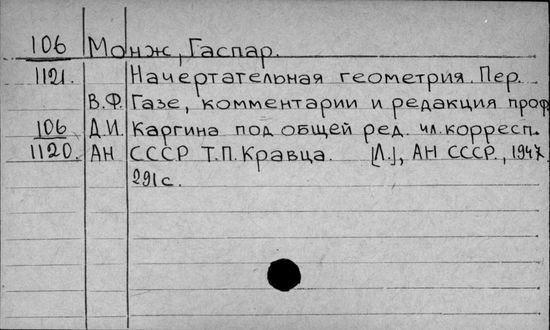 106 Монж, Гаспар.
1121. Начертательная геометрия. Пер.
В.Ф. Газе, комментарии и редакция проф.
106 Д.И. Каргина под общей ред. чл. корресп.
1120. АН СССР Т.П. Кравца. [Л.], АН СССР, 1947.
291 с.